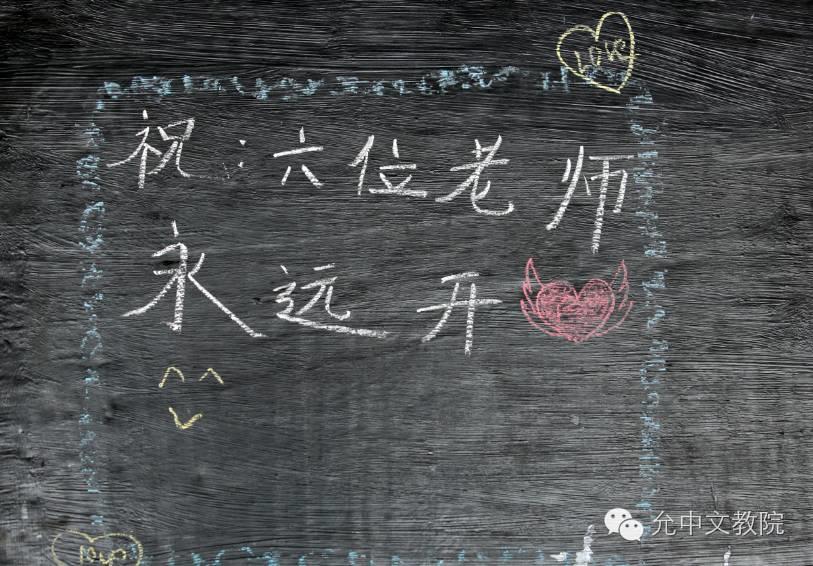 Love
祝:六位老师
永远开
Love
允中文教院